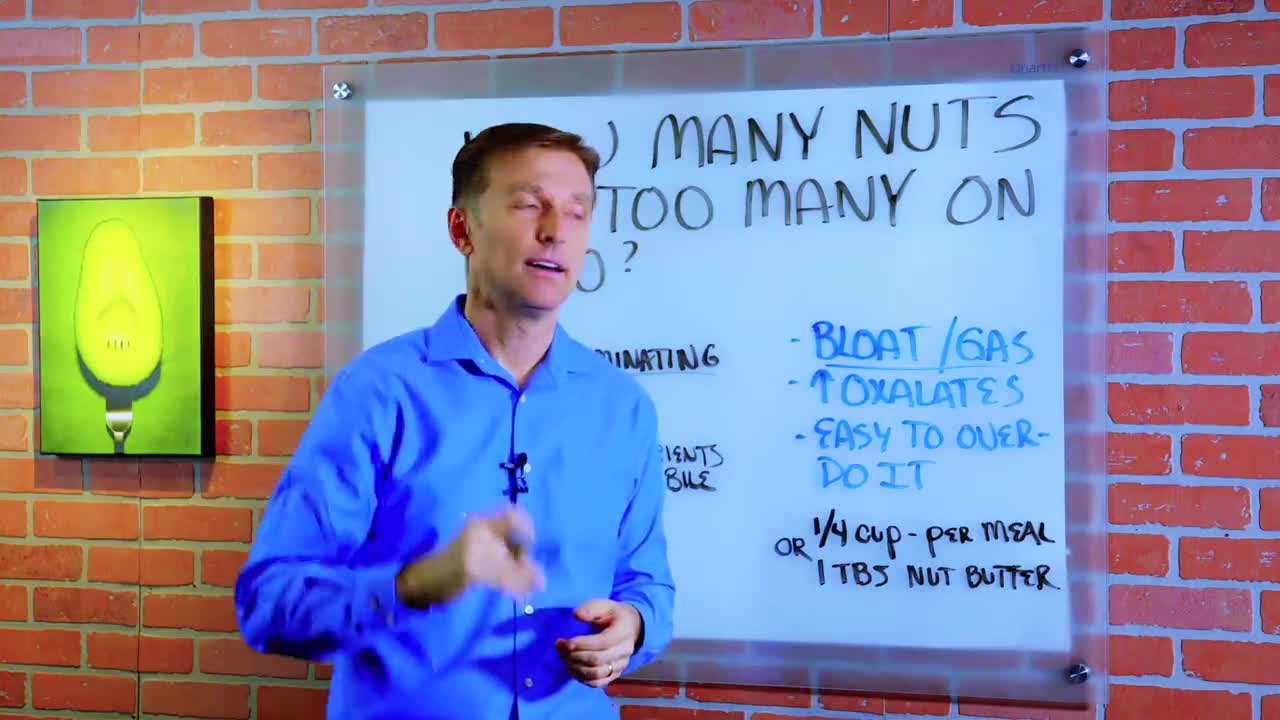 MANY NUTS
TOO MANY ON
?
- BLOAT/GAS
- ↑OXALATES
- EASY TO OVER-
DO IT
OR 1/4 CUP - PER MEAL
1 TBS NUT BUTTER